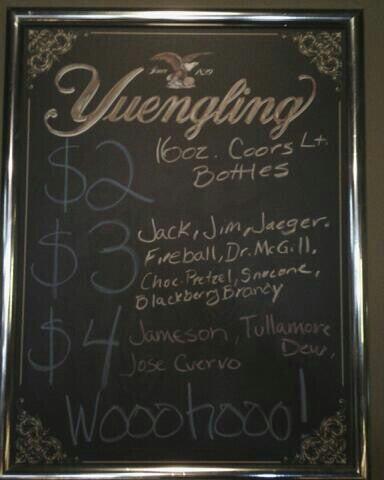 Since 1829
Yuengling
$2 16oz. Coors Lt.
Bottles
$3 Jack, Jim, Jaeger.
Fireball, Dr. McGill,
Choc. Pretzel, Snocone,
Blackberg Brandy
$4 Jameson, Tullamore
Dew,
Jose Cuervo
Wooohooo!